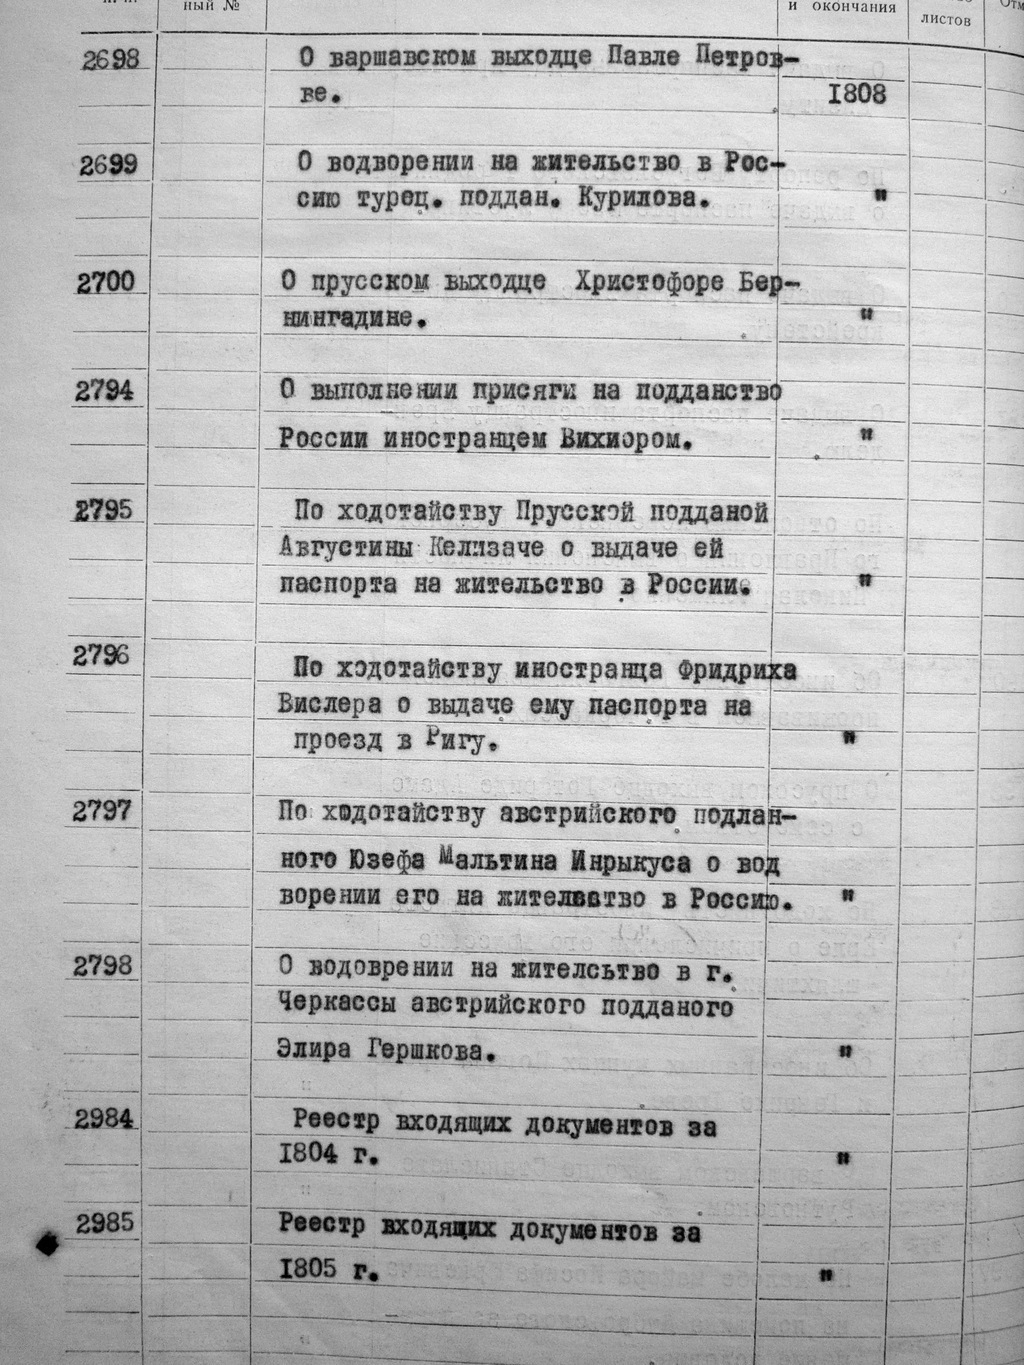 ный №
и окончания
листов
2698 О варшавском выходце Павле Петров-
ве. 1808
2699 О водворении на жительство в Рос-
сию турец. поддан. Курилова. "
2700 О прусском выходце Христофоре Бер-
нингадине. "
2794 О выполнении присяги на подданство
России иностранцем Вихиором. "
2795 По ходотайству Прусской подданой
Августины Келлзаче о выдаче ей
паспорта на жительство в России. "
2796
По ходотайству иностранца Фридриха
Вислера о выдаче ему паспорта на
проезд в Ригу. "
2797 По ходотайству австрийского подлан-
ного Юзефа Мальтина Инрыкуса о вод
ворении его на жительство в Россию. "
2798 О водоврении на жителсьтво в г.
Черкассы австрийского подданого
Элира Гершкова. "
2984 Реестр входящих документов за
1804 г. "
2985 Реестр входящих документов за
1805 г. "